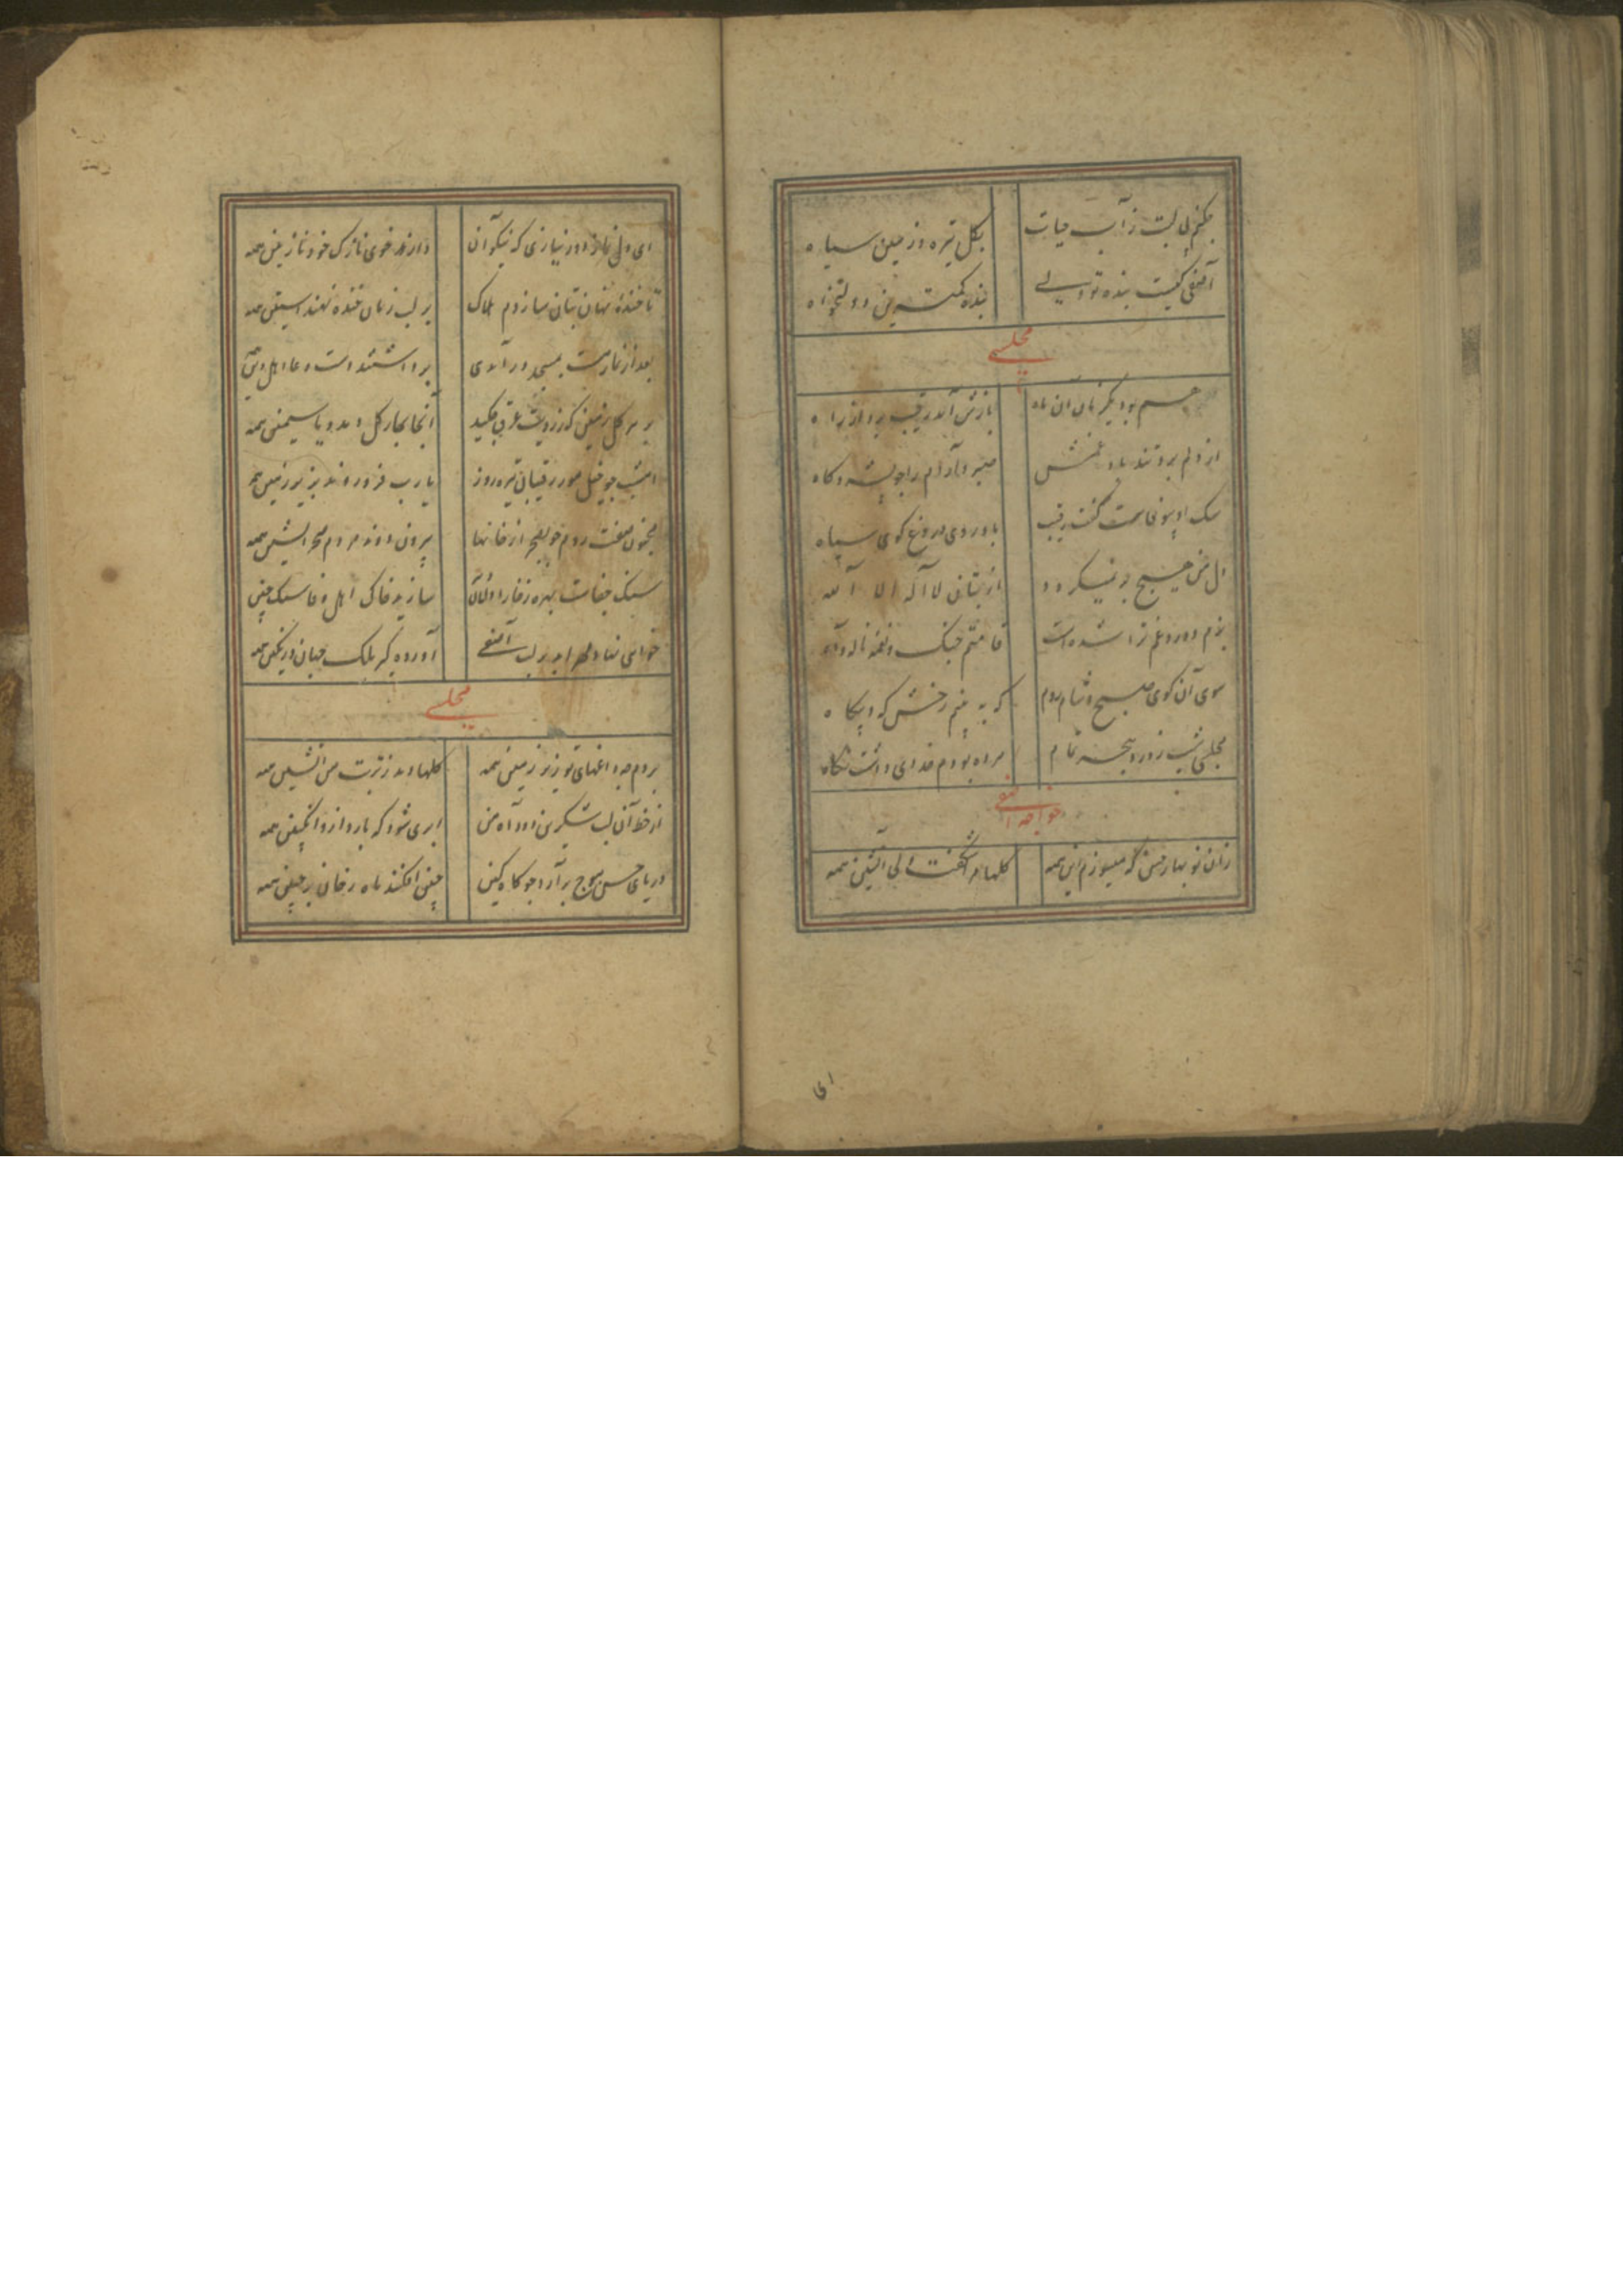 بی لبت ز آب حیات
بکل تیره و زمین سیاه
آصفی کیست بنده تو ولی
بنده کمترین دولتخواه
مجلسی
آن ماه
بازش آید رقیب بر در راه
از دلم برد تندباد غمش
صبر و آرام را چو پشه و کاه
سک او بیوفاست گفت رقیب
باد روی دروغ کوی سیاه
دل من هیچ بر نمیکردد
از بتان لا اله الا الله
بزم درد و غم ترا شده است
قامتم چنک و نغمه ناله و آه
سوی آن کوی صبح و شام روم
که به بینم رخش که و بیکاه
مجلسی شب ز درد هجر تمام
مرده بودم خدای داشت نکاه
خواجه آصفی
زان نوبهار حسن که میسوزم این همه
کلها شکفت ولی آتشین همه
ای
ای دل نماز اور نیازی که نیکوان
دارند خوی نازک خود نازنین همه
تا خندهٔ نهان بتان سازدم هلاک
بر لب زمان خنده نهند آستین همه
بعد از نماز مست بمسجد در آمدی
برداشتند دست دعا اهل دین
بر هر کل زمین که ز رویت عرق چکید
آنجا بجای کل دمد و یاسمین همه
امشب چو خیل مور رقیبان تیره روز
یارب فرو روند بزیر زمین همه
مجنون صفت روم چو بصحرا ز خانها
بیرون دوند مردم صحرانشین همه
سنک جفات بهره ز فتار او
سازند خاک اهل وفا سنک چین
خواهی نهاد لب آصفی
آورده کیر ملک جهان در نکین همه
مجلسی
بردم چو داغهای تو زیر زمین همه
کلها دمد ز تربت من آتشین همه
از خط آن لب شکرین دود آه من
ابری شود که بارد ازو انکبین همه
دریای حسن موج بر آرد چو کاه کین
چین افکنند ماه رخان بر جبین همه